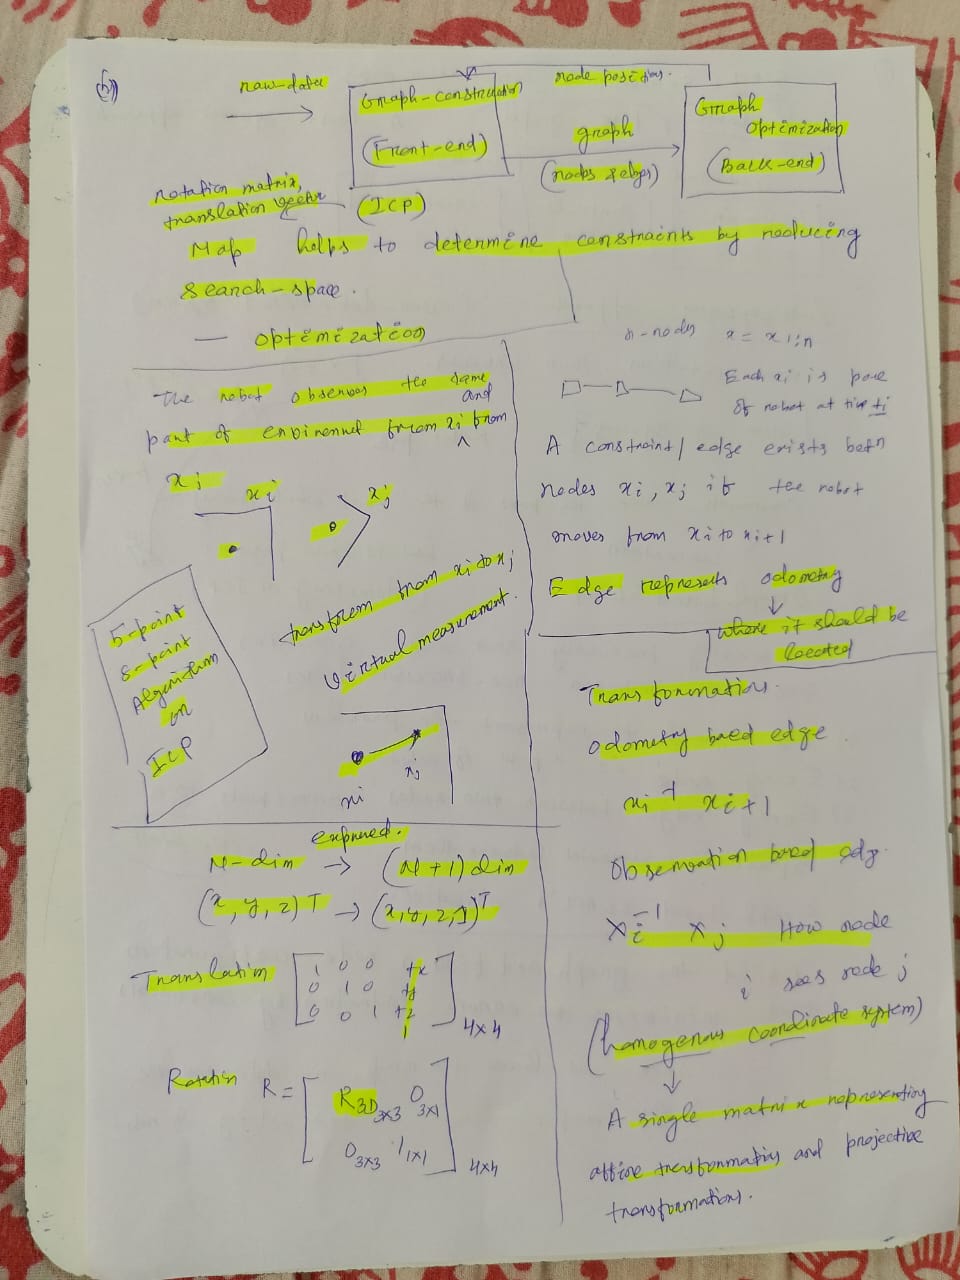 raw-data
node positions.
Graph-construction
(Front-end)
graph
(nodes & edges)
Graph
optimization
(Back-end)
rotation matrix,
translation vector
(ICP)
Map helps to determine constraints by reducing
search-space.
— optimization
the robot observes the same
and
part of environment from xi ^ from
xj
xi
xj
transform from xi to xj
virtual measurement.
5-point
8-point
Algorithm
or
ICP
xi
xj
n-nodes x = x1:n
Each xi is pose
of robot at time ti
A constraint/edge exists betn
nodes xi, xj if the robot
moves from xi to xi+1
Edge represents odometry
↓
where it should be
located
Transformation.
odometry based edge
xi⁻¹ xi+1
Observation based edge.
Xi⁻¹ xj How node
i sees node j
(homogenous coordinate system)
↓
A single matrix representing
affine transformations and projective
transformations.
expressed.
N-dim → (N+1) dim
(x, y, z)T → (x, y, z, 1)T
Translation
1 0 0 tx
0 1 0 ty
0 0 1 tz
1
4x4
Rotation R =
R3D 3x3 0 3x1
0 3x3 1 1x1
4x4